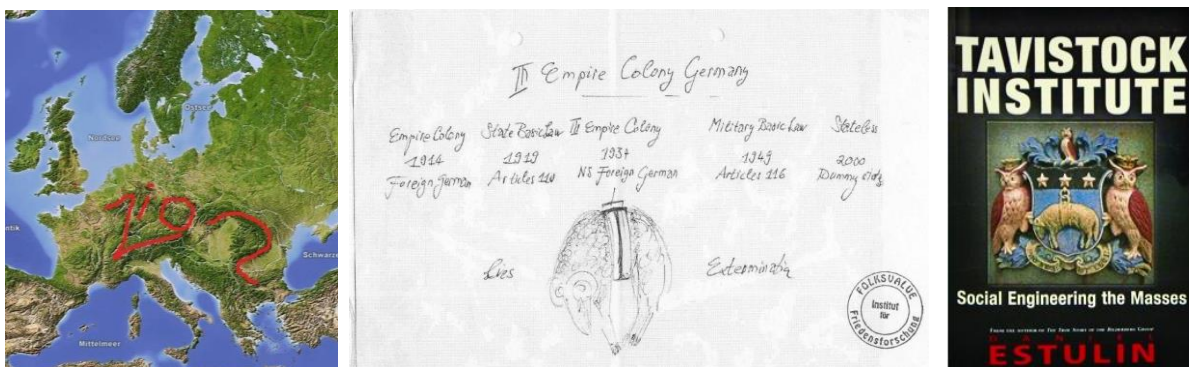 Nordsee
Ostsee
Schwarze
Mittelmeer
III Empire Colony Germany
Empire Colony
1914
Foreign German
State Basic Law
1919
Articles 110
III Empire Colony
1934
NS Foreign German
Military Basic Law
1949
Articles 116
Stateless
2000
Lies
FOLKSVALUE
Institut
für
Friedensforschung
TAVISTOCK
INSTITUTE
Social Engineering the Masses
FROM THE AUTHOR OF THE TRUE STORY OF THE BILDERBERG GROUP
DANIEL
ESTULIN